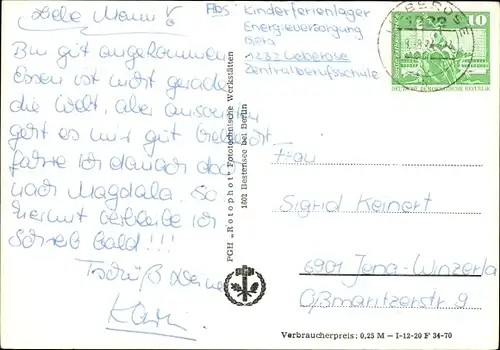 Liebe Mami!
Bin gut angekommen
Essen ist nicht gerade
die Welt, aber ansonsten
geht es mir gut
fahre ich danach doch
nach Magdala. So
hiermit verbleibe ich
Schreib bald!!!
Tschüß Deine
Abs Kinderferienlager
Energieversorgung
Gera
1232 Leberose
Zentralberufsschule
PGH „Rotophot" Fototechnische Werkstätten
1602 Bestensee bei Berlin
10
DEUTSCHE DEMOKRATISCHE REPUBLIK
Frau
Sigrid Keinert
6901 Jena-Winzerla
Oßmaritzerstr. 9
Verbraucherpreis: 0,25 M – I-12-20 F 34-70